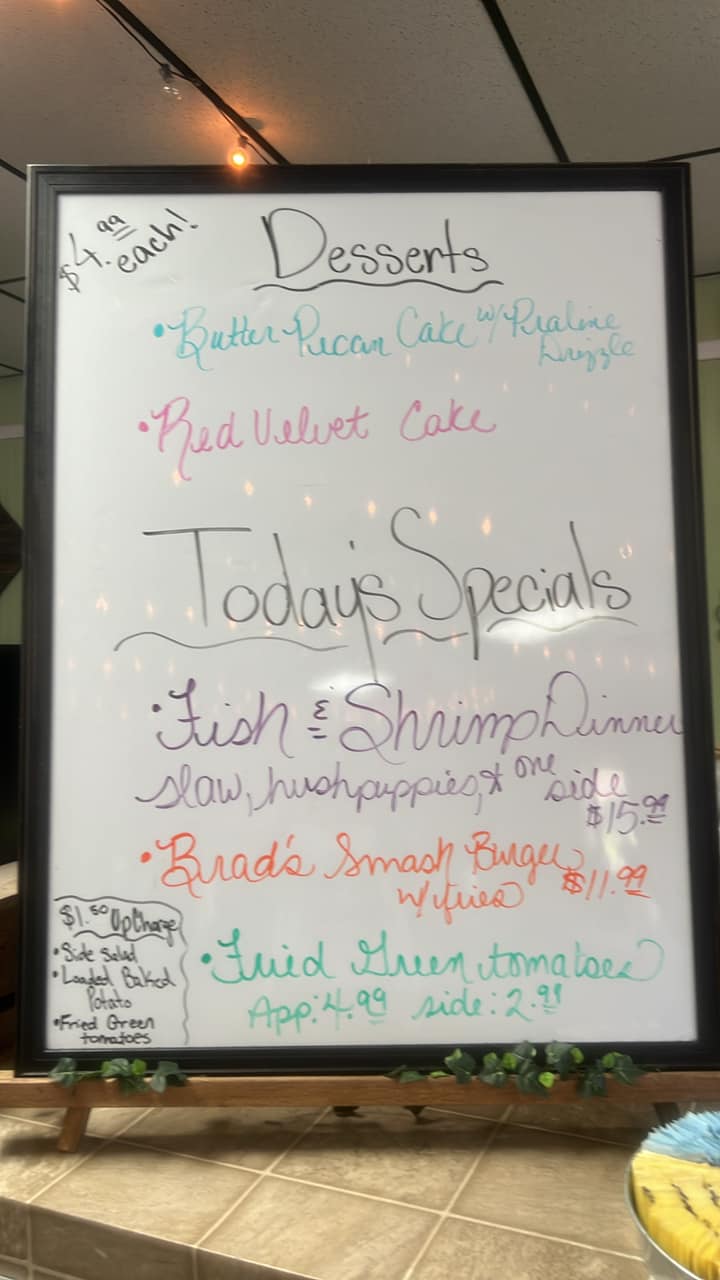 $4.99
each!
Desserts
• Butter Pecan Cake w/ Praline
Drizzle
• Red Velvet Cake
Today's Specials
• Fish & Shrimp Dinner
slaw, hushpuppies, & one side
$15.99
• Brad's Smash Burger $11.99
w/ fries
• Fried Green tomatoes
App: 4.99 side: 2.99
$1.50 UpCharge
• Side Salad
• Loaded Baked
Potato
• Fried Green
tomatoes